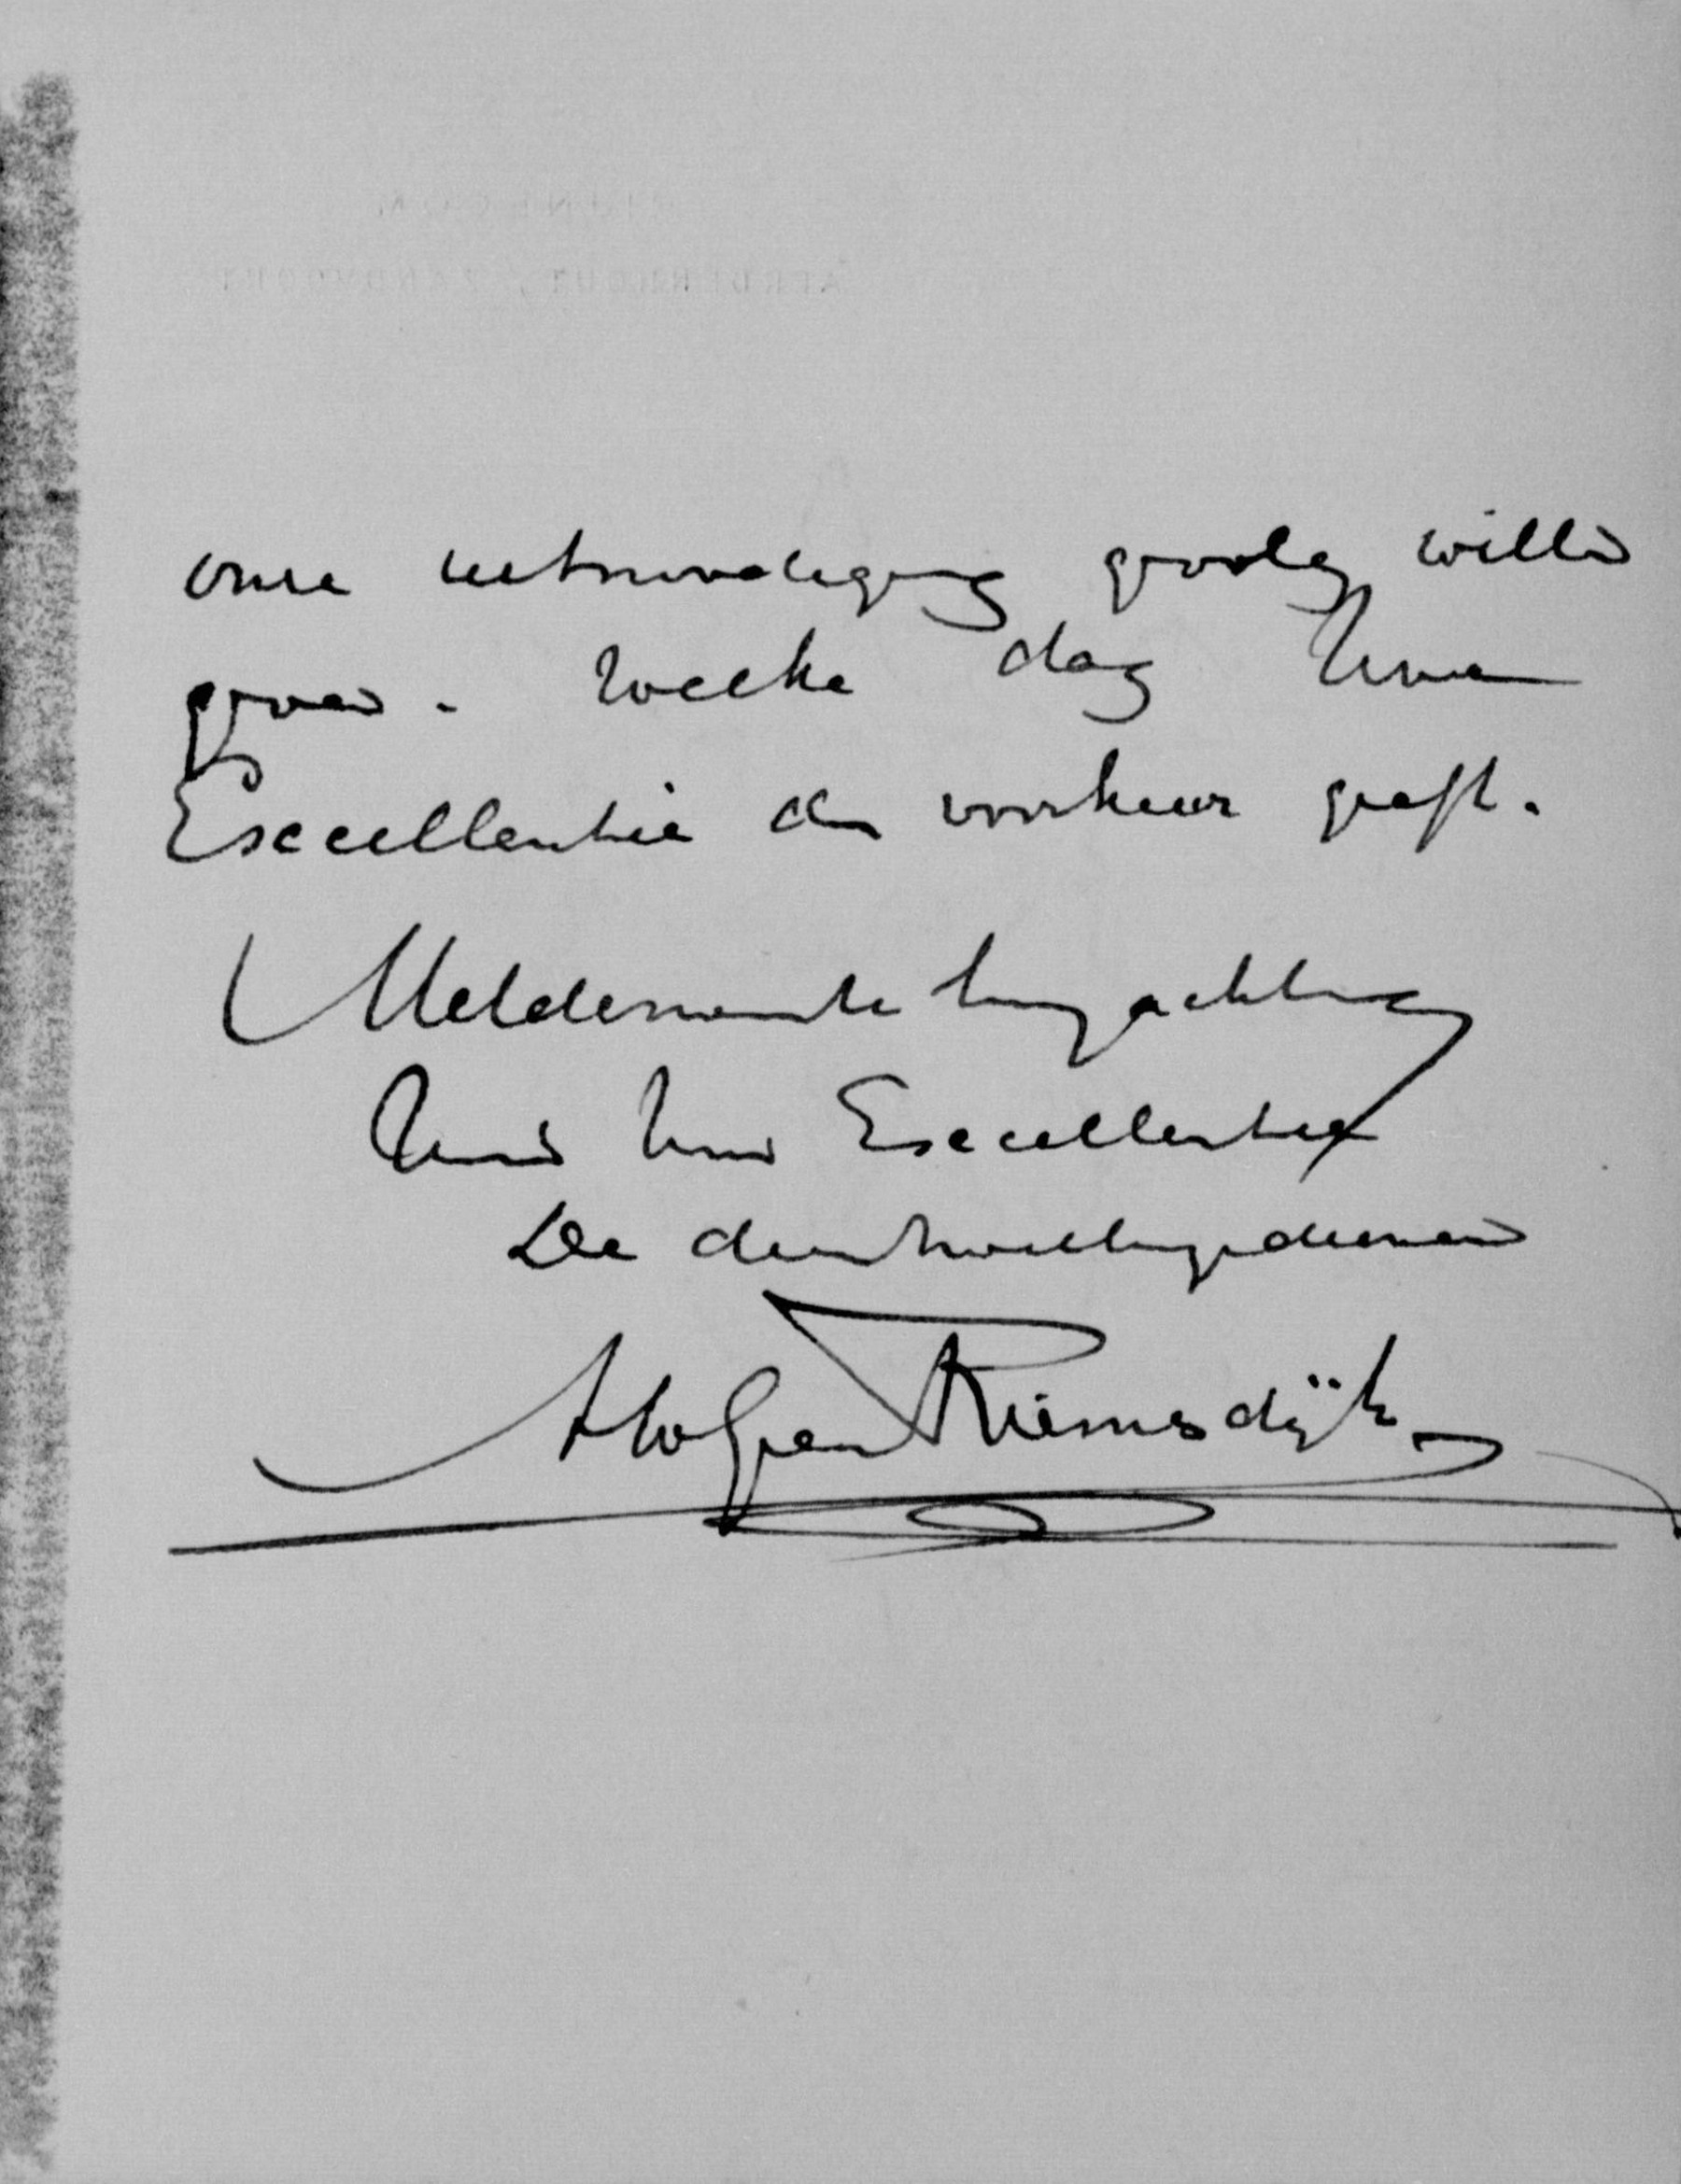 onze uitnoodiging gevolg willen
geven. Welke dag Uwe
Excellentie de voorkeur geeft.
Met de meeste hoogachting
Uwe Excellentie
De dienstwillige dienaar
van Riemsdijk